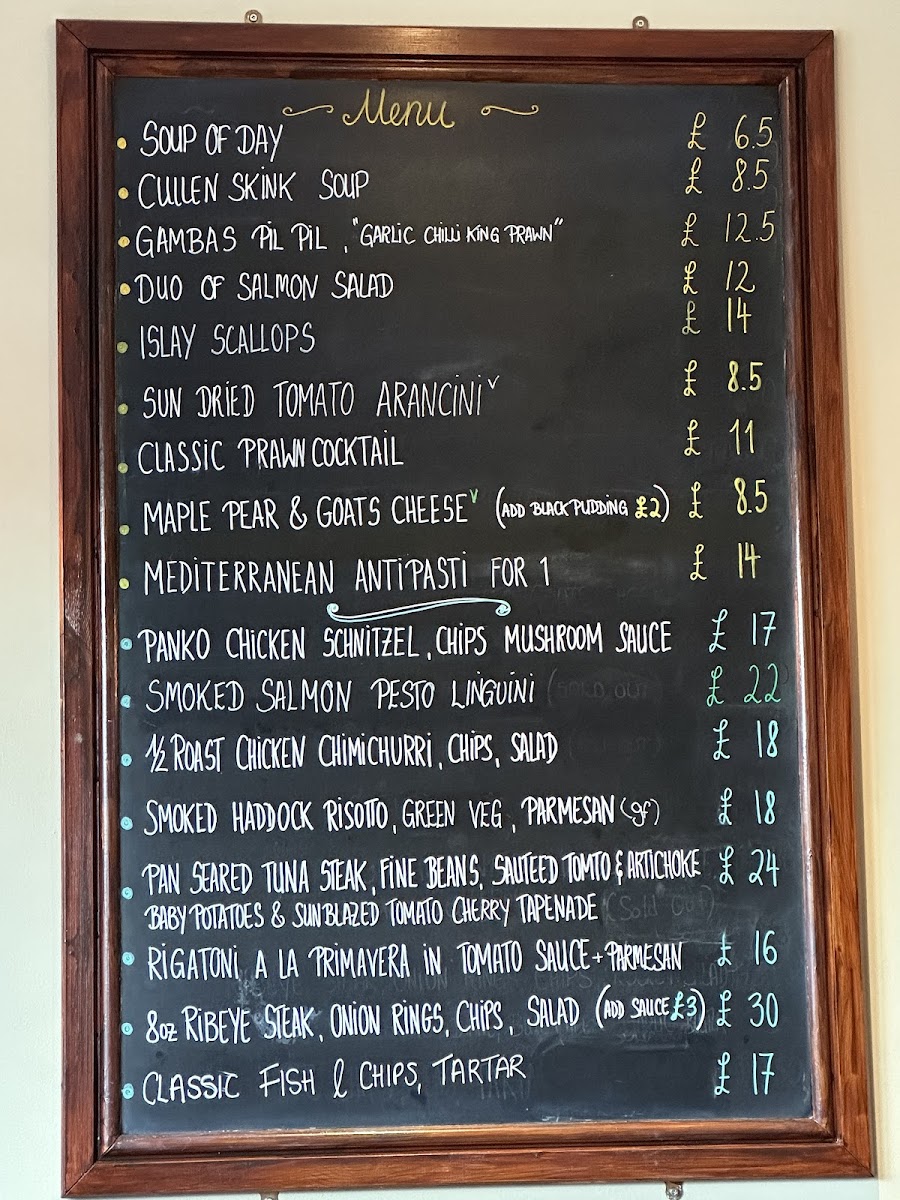 Menu
SOUP OF DAY £ 6.5
CULLEN SKINK SOUP £ 8.5
GAMBAS PIL PIL, "GARLIC CHILLI KING PRAWN" £ 12.5
DUO OF SALMON SALAD £ 12
ISLAY SCALLOPS £ 14
SUN DRIED TOMATO ARANCINI V £ 8.5
CLASSIC PRAWN COCKTAIL £ 11
MAPLE PEAR & GOATS CHEESE V (ADD BLACK PUDDING £2) £ 8.5
MEDITERRANEAN ANTIPASTI FOR 1 £ 14
PANKO CHICKEN SCHNITZEL, CHIPS MUSHROOM SAUCE £ 17
SMOKED SALMON PESTO LINGUINI (SOLD OUT £ 22
1/2 ROAST CHICKEN CHIMICHURRI, CHIPS, SALAD £ 18
SMOKED HADDOCK RISOTTO, GREEN VEG, PARMESAN (gf) £ 18
PAN SEARED TUNA STEAK, FINE BEANS, SAUTEED TOMTO & ARTICHOKE £ 24
BABY POTATOES & SUNBLAZED TOMATO CHERRY TAPENADE (Sold Out)
RIGATONI A LA PRIMAVERA IN TOMATO SAUCE + PARMESAN £ 16
8oz RIBEYE STEAK, ONION RINGS, CHIPS, SALAD (ADD SAUCE £3) £ 30
CLASSIC FISH & CHIPS, TARTAR £ 17